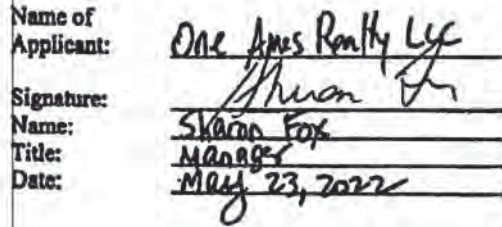 Name of
Applicant: One Ames Realty LLC
Signature: Sharon Fox
Name: Sharon Fox
Title: Manager
Date: May 23, 2022